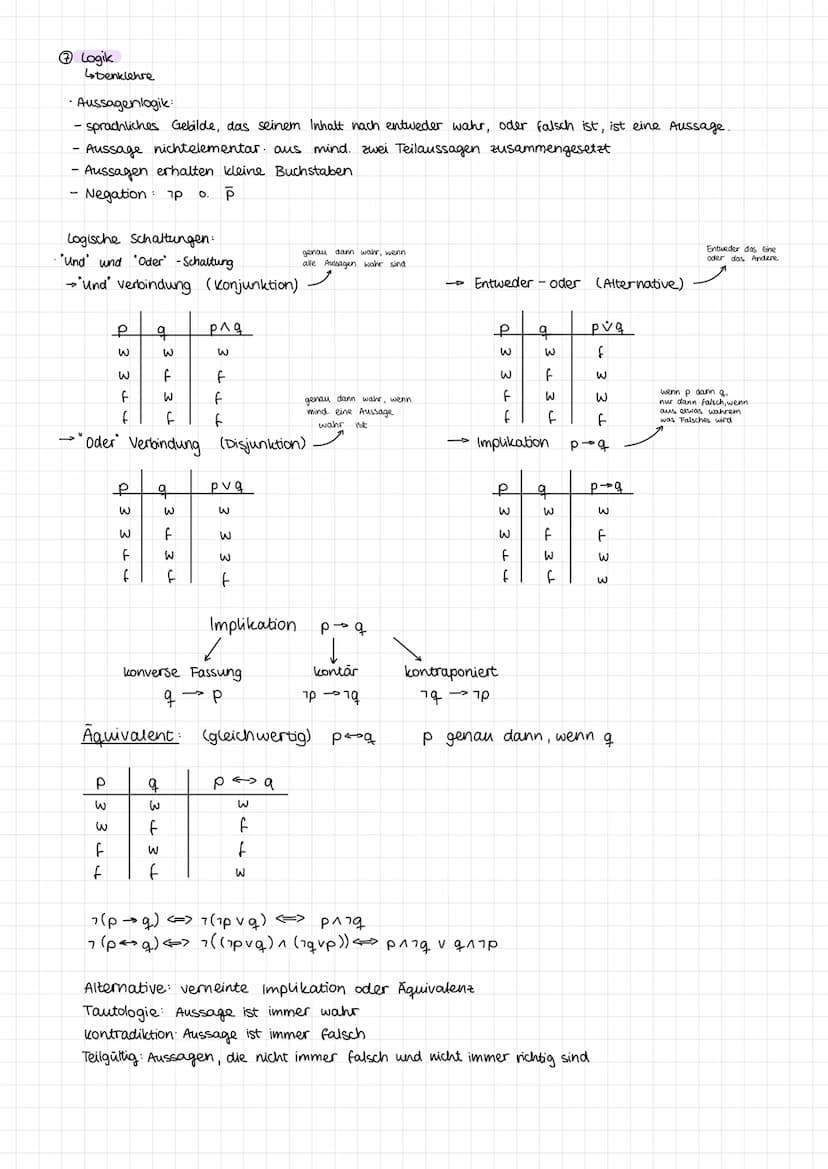 ⑦ Logik
↳ Denklehre
· Aussagenlogik:
- sprachliches Gebilde, das seinem Inhalt nach entweder wahr, oder falsch ist, ist eine Aussage.
- Aussage nichtelementar: aus mind. zwei Teilaussagen zusammengesetzt
- Aussagen erhalten kleine Buchstaben
- Negation: ¬p o. p̅
Logische Schaltungen:
· "Und" und "Oder" - Schaltung
→ "Und" Verbindung (Konjunktion)
genau dann wahr, wenn
alle Aussagen wahr sind
p q p∧q
w w w
w f f
f w f
f f f
→ Entweder - oder (Alternative)
Entweder das Eine
oder das Andere
p q p∨̇q
w w f
w f w
f w w
f f f
→ "Oder" Verbindung (Disjunktion)
genau dann wahr, wenn
mind. eine Aussage
wahr ist
p q p∨q
w w w
w f w
f w w
f f f
→ Implikation p→q
wenn p dann q,
nur dann falsch, wenn
aus etwas wahrem
was Falsches wird
p q p→q
w w w
w f f
f w w
f f w
Implikation p→q
konverse Fassung kontär kontraponiert
q → p ¬p → ¬q ¬q → ¬p
Äquivalent: (gleichwertig) p↔q p genau dann, wenn q
p q p ↔ q
w w w
w f f
f w f
f f w
¬(p → q) ⇔ ¬(¬p ∨ q) ⇔ p∧¬q
¬(p↔q) ⇔ ¬((¬p∨q) ∧ (¬q∨p)) ⇔ p∧¬q ∨ q∧¬p
Alternative: verneinte Implikation oder Äquivalenz
Tautologie: Aussage ist immer wahr
Kontradiktion: Aussage ist immer falsch
Teilgültig: Aussagen, die nicht immer falsch und nicht immer richtig sind